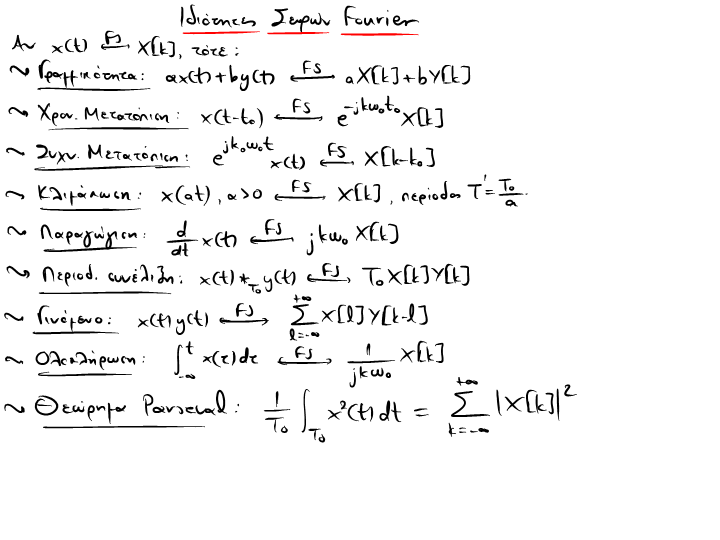 Ιδιότητες Σειρών Fourier
Αν x(t) ←FS→ X[k], τότε:
~ Γραμμικότητα: ax(t)+by(t) ←FS→ aX[k]+bY[k]
~ Χρον. Μετατόπιση: x(t-t₀) ←FS→ e^{-jkω₀t₀}X[k]
~ Συχν. Μετατόπιση: e^{jk₀ω₀t}x(t) ←FS→ X[k-k₀]
~ Κλιμάκωση: x(at), a>0 ←FS→ X[k], περίοδος T'=T₀/a.
~ Παραγώγιση: d/dt x(t) ←FS→ jkω₀X[k]
~ Περιοδ. συνέλιξη: x(t) *_{T₀} y(t) ←FS→ T₀X[k]Y[k]
~ Γινόμενο: x(t)y(t) ←FS→ ∑_{l=-∞}^{+∞} X[l]Y[k-l]
~ Ολοκλήρωση: ∫_{-∞}^{t} x(τ)dτ ←FS→ 1/(jkω₀) X[k]
~ Θεώρημα Parseval: 1/T₀ ∫_{T₀} x²(t)dt = ∑_{k=-∞}^{+∞} |X[k]|²